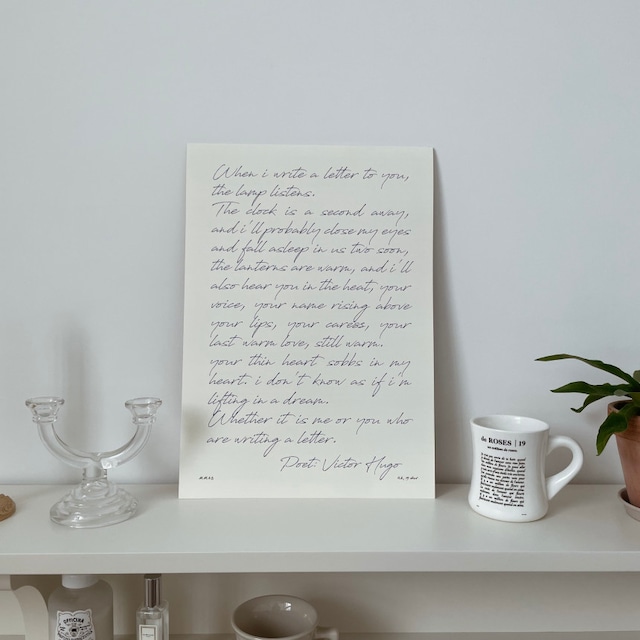 When i write a letter to you,
the lamp listens.
The clock is a second away,
and i'll probably close my eyes
and fall asleep in us two soon,
the lanterns are warm, and i'll
also hear you in the heat, your
voice, your name rising above
your lips, your caress, your
last warm love, still warm.
your thin heart sobbs in my
heart. i don't know as if i'm
lifting in a dream.
Whether it is me or you who
are writing a letter.
Poet: Victor Hugo
de ROSES | 19
OFFICINA